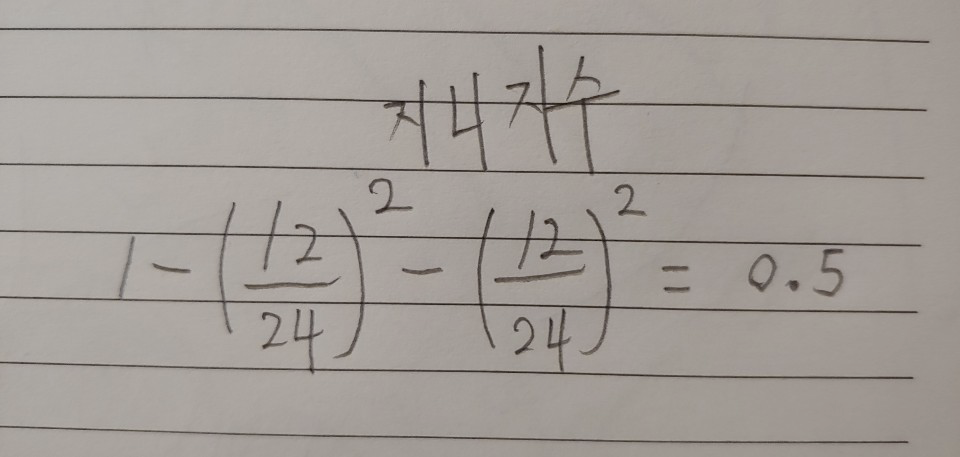 지니지수
1 - (12/24)² - (12/24)² = 0.5